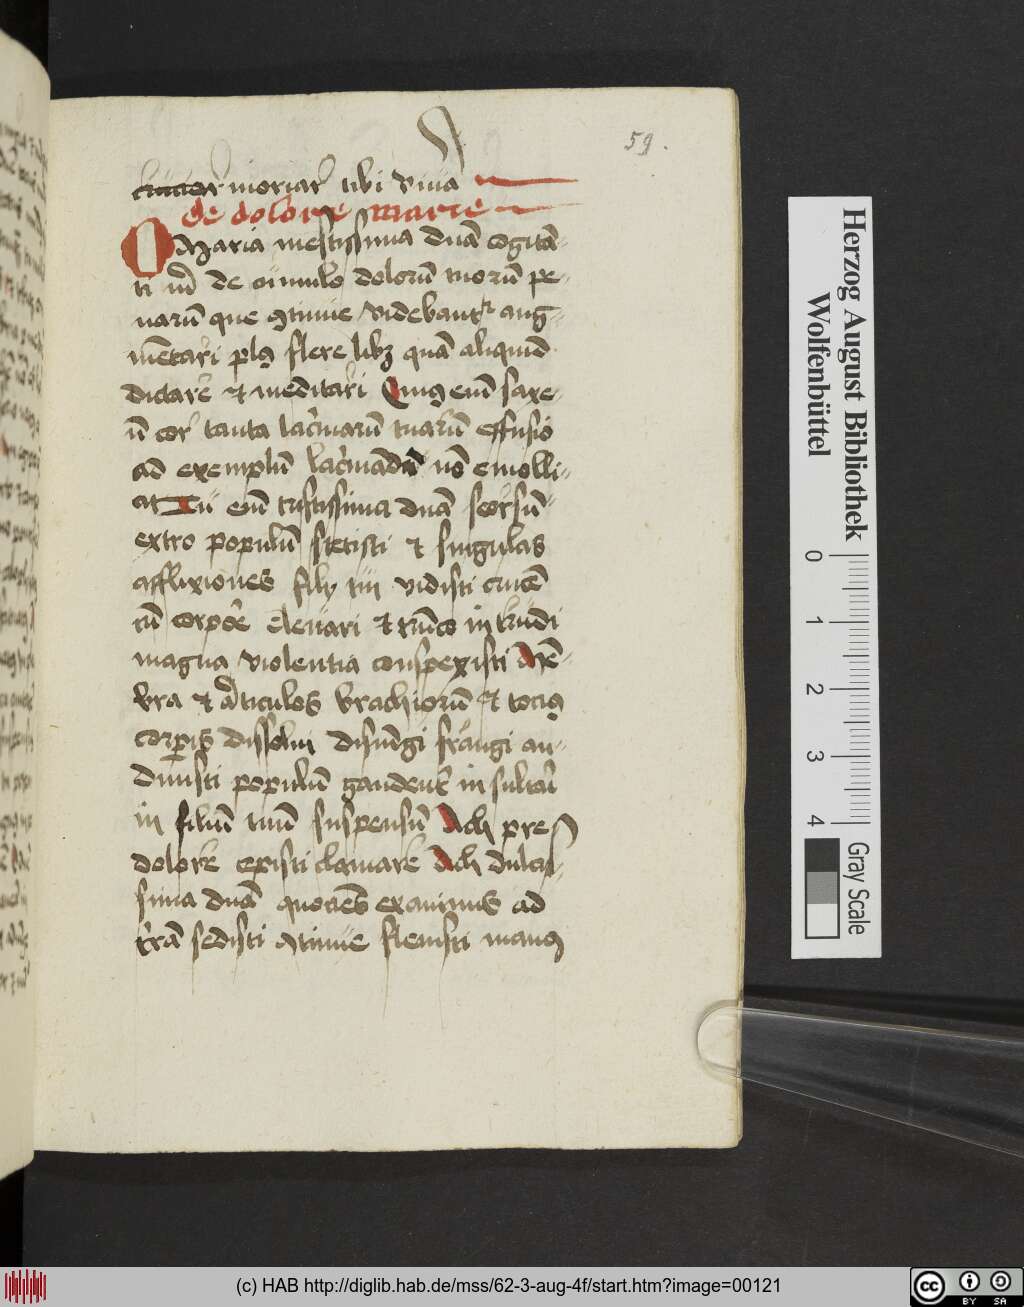 59.
moriar tibi viua
de dolore marie
O Maria mestissima dnā cogitā-
ti m̄ de cumulo dolorū tuorū pe-
narū que ꝯtinue videbant᷑ aug-
mētari plꝰ flere libꝫ quā aliquid
dictare et meditari Cuiꝰ enī saxe-
ū cor tanta lacrīmarū tuarū effusio
ad exemplū lacrimādi nō emolli-
at Tu enī tristissima dnā seorsū-
extro populū stetisti et singulas
afflixiones filij tui vidisti crucē
cū corpore eleuari et trūco intrudi
magna violentia conspexisti mē-
bra et articulos brachiorū et tociꝰ
corꝑis dissolui disiūgi frangi au-
diuisti populū gaudere insultare
in filiū tuū suspensū Ach pre
dolore cepisti clamare Ach dulcis-
sima dnā quociēs exanimis ad
t̄rā sedisti ꝯtinue fleuisti manꝰ
Herzog August Bibliothek
Wolfenbüttel
0 1 2 3 4
Gray Scale
(c) HAB http://diglib.hab.de/mss/62-3-aug-4f/start.htm?image=00121
cc BY SA